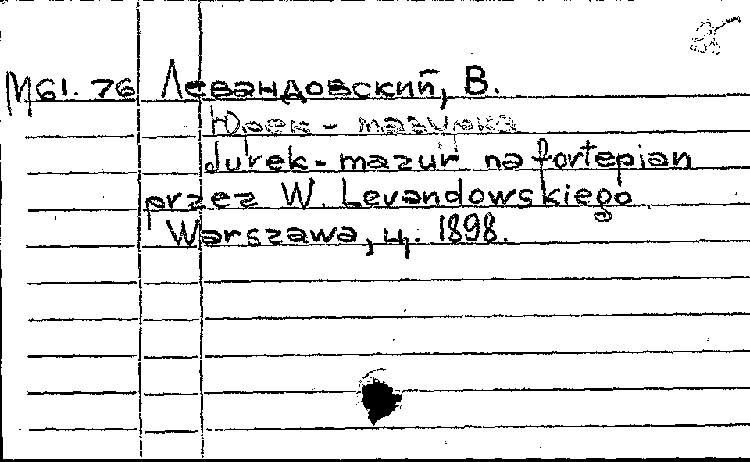 М61.76 Левандовский, В.
Юрек - мазурка
Jurek-mazur na fortepian
przez W. Levandowskiego
Warszawa, ц. 1898.